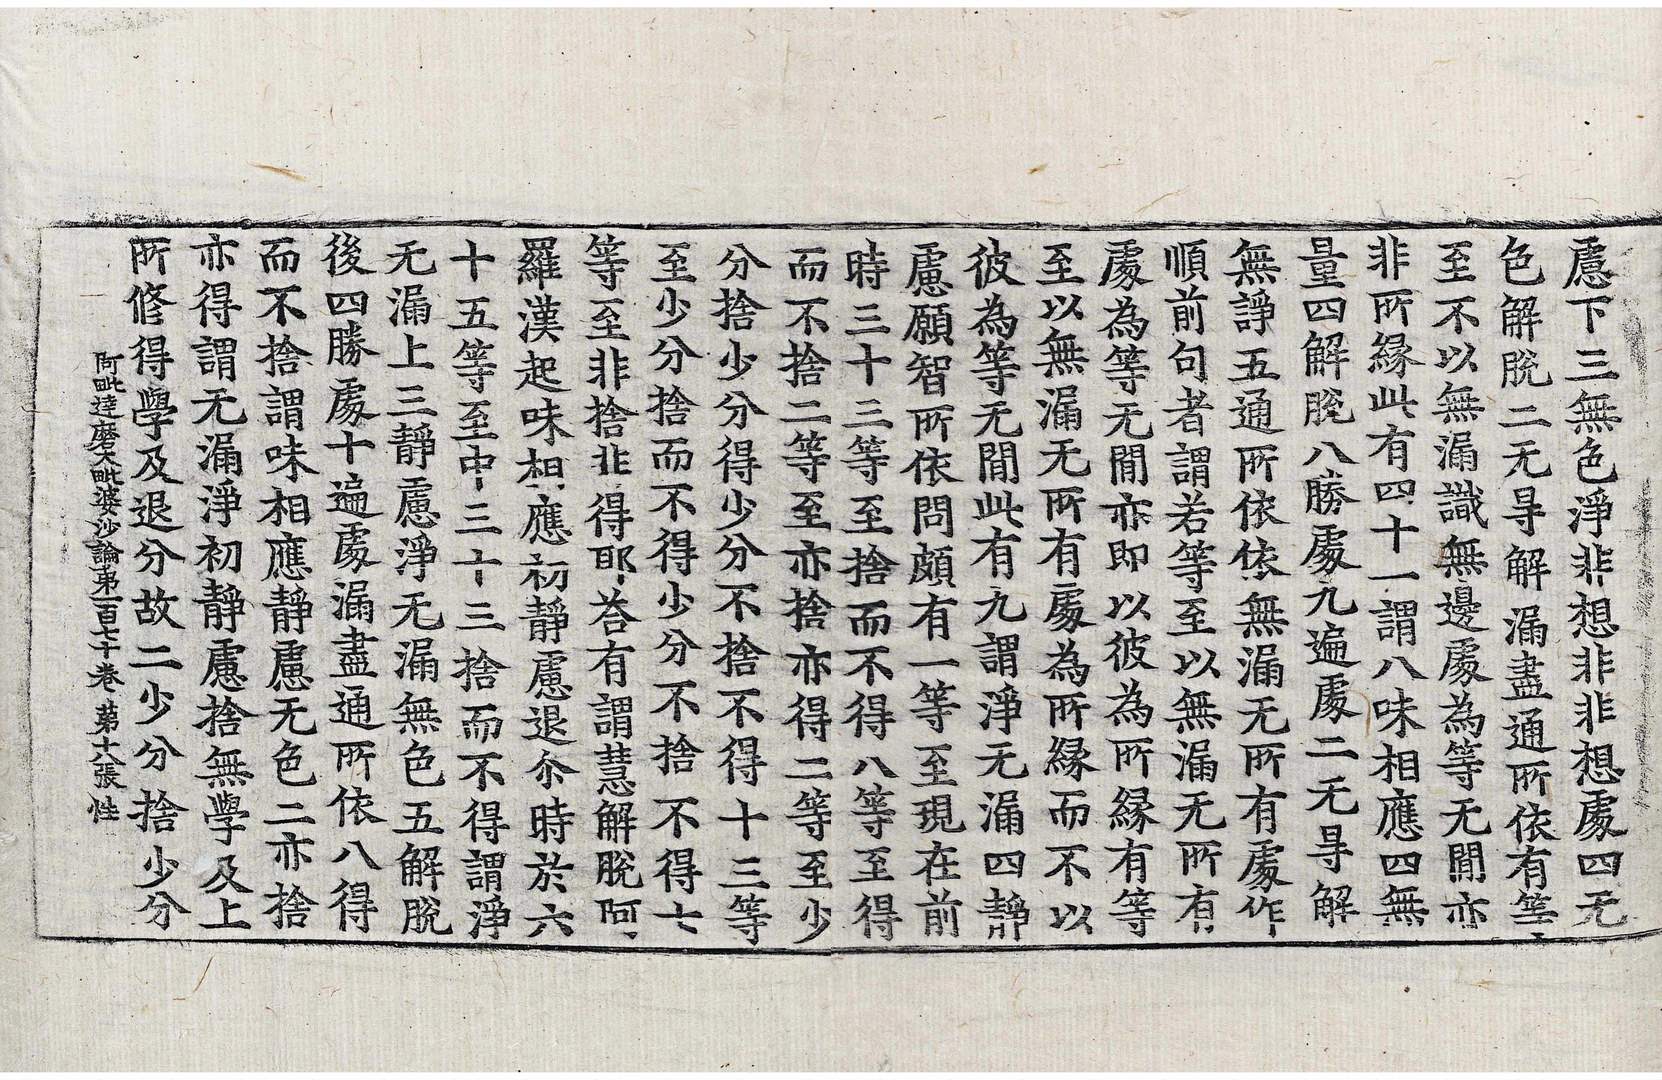 慮下三無色淨非想非非想處四无
色解脫二无㝵解漏盡通所依有等
至不以無漏識無邊處為等无間亦
非所緣此有四十一謂八味相應四無
量四解脫八勝處九遍處二无㝵解
無諍五通所依依無漏无所有處作
順前句者謂若等至以無漏无所有
處為等无間亦即以彼為所緣有等
至以無漏无所有處為所緣而不以
彼為等无間此有九謂淨无漏四靜
慮願智所依問頗有一等至現在前
時三十三等至捨而不得八等至得
而不捨二等至亦捨亦得二等至少
分捨少分得少分不捨不得十三等
至少分捨而不得少分不捨不得七
等至非捨非得耶荅有謂慧解脫阿
羅漢起味相應初靜慮退尒時於六
十五等至中三十三捨而不得謂淨
无漏上三靜慮淨无漏無色五解脫
後四勝處十遍處漏盡通所依八得
而不捨謂味相應靜慮无色二亦捨
亦得謂无漏淨初靜慮捨無學及上
所修得學及退分故二少分捨少分
阿毗達磨大毗婆沙論第一百七十卷 第十八張 性